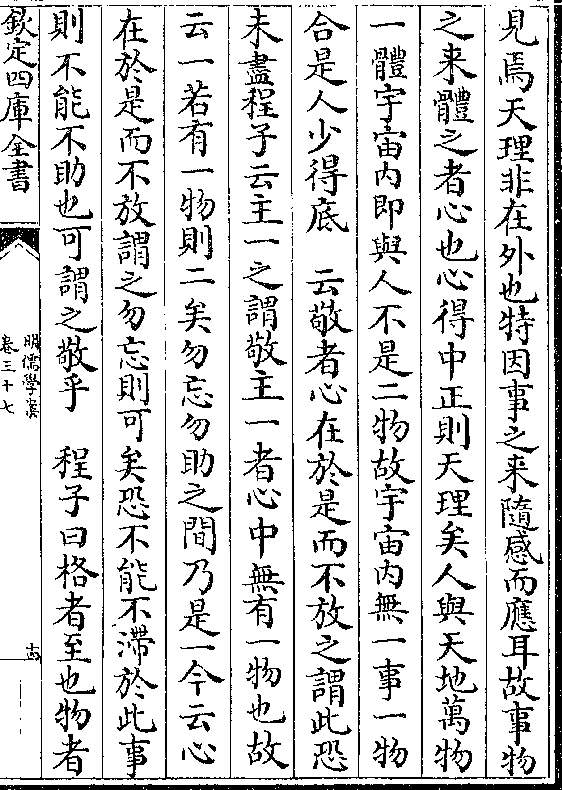 見焉天理非在外也特因事之来隨感而應耳故事物
之来體之者心也心得中正則天理矣人與天地萬物
一體宇宙内即與人不是二物故宇宙内無一事一物
合是人少得底　云敬者心在於是而不放之謂此恐
未盡程子云主一之謂敬主一者心中無有一物也故
云一若有一物則二矣勿忘勿助之間乃是一今云心
在於是而不放謂之勿忘則可矣恐不能不滯於此事
則不能不助也可謂之敬乎　程子曰格者至也物者
欽定四庫全書
明儒學案
卷三十七
十四